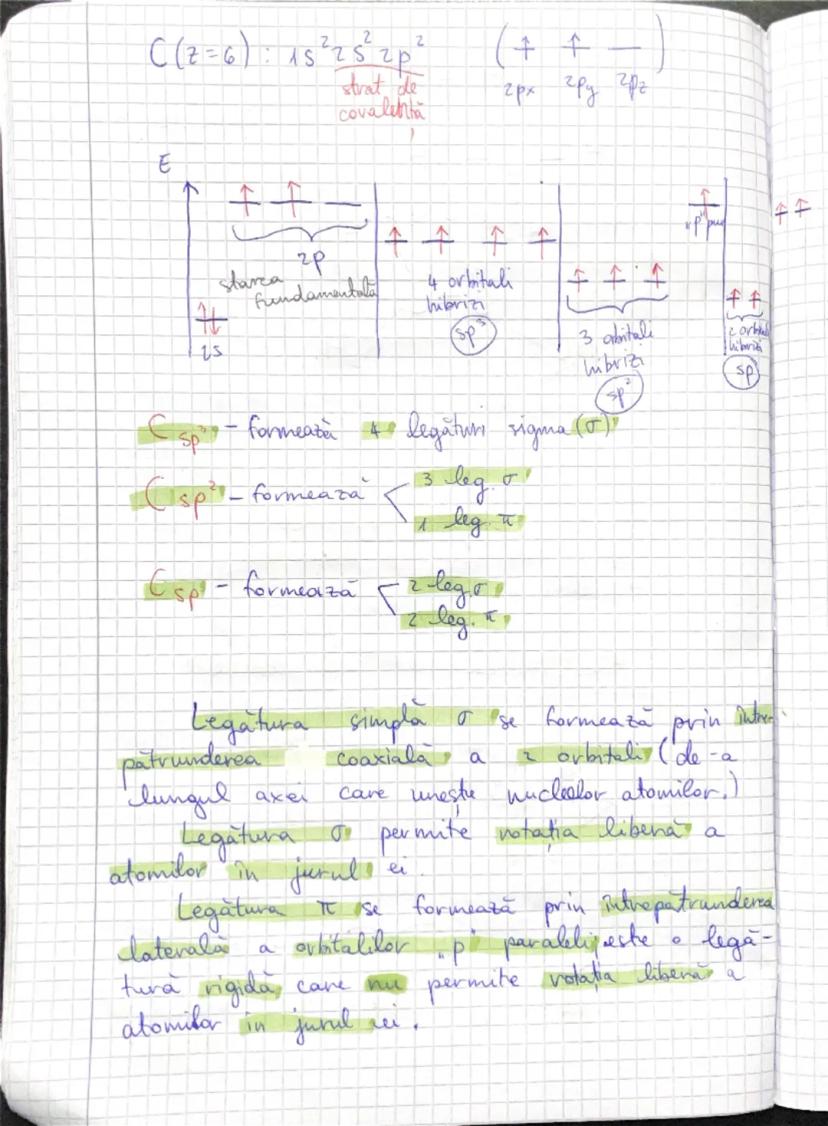 C (z=6) : 1s² 2s² 2p² ( ↑ ↑ — )
2px 2py 2pz
strat de
covalență
E
2p
starea
fundamentală
2s
4 orbitali
hibrizi
sp³
3 orbitali
hibrizi
sp²
"p" pur
2 orbitali
hibrizi
sp
C sp³ - formează 4 legături sigma (σ)
C sp² - formează
3 leg. σ
1 leg. π
C sp - formează
2 leg. σ
2 leg. π
Legătura simplă σ se formează prin între
pătrunderea coaxială a 2 orbitali (de-a
lungul axei care unește nucleelor atomilor.)
Legătura σ permite rotația liberă a
atomilor în jurul ei.
Legătura π se formează prin întrepătrunderea
laterală a orbitalilor „p" paraleli, este o legă-
tură rigidă, care nu permite rotația liberă a
atomilor în jurul ei.